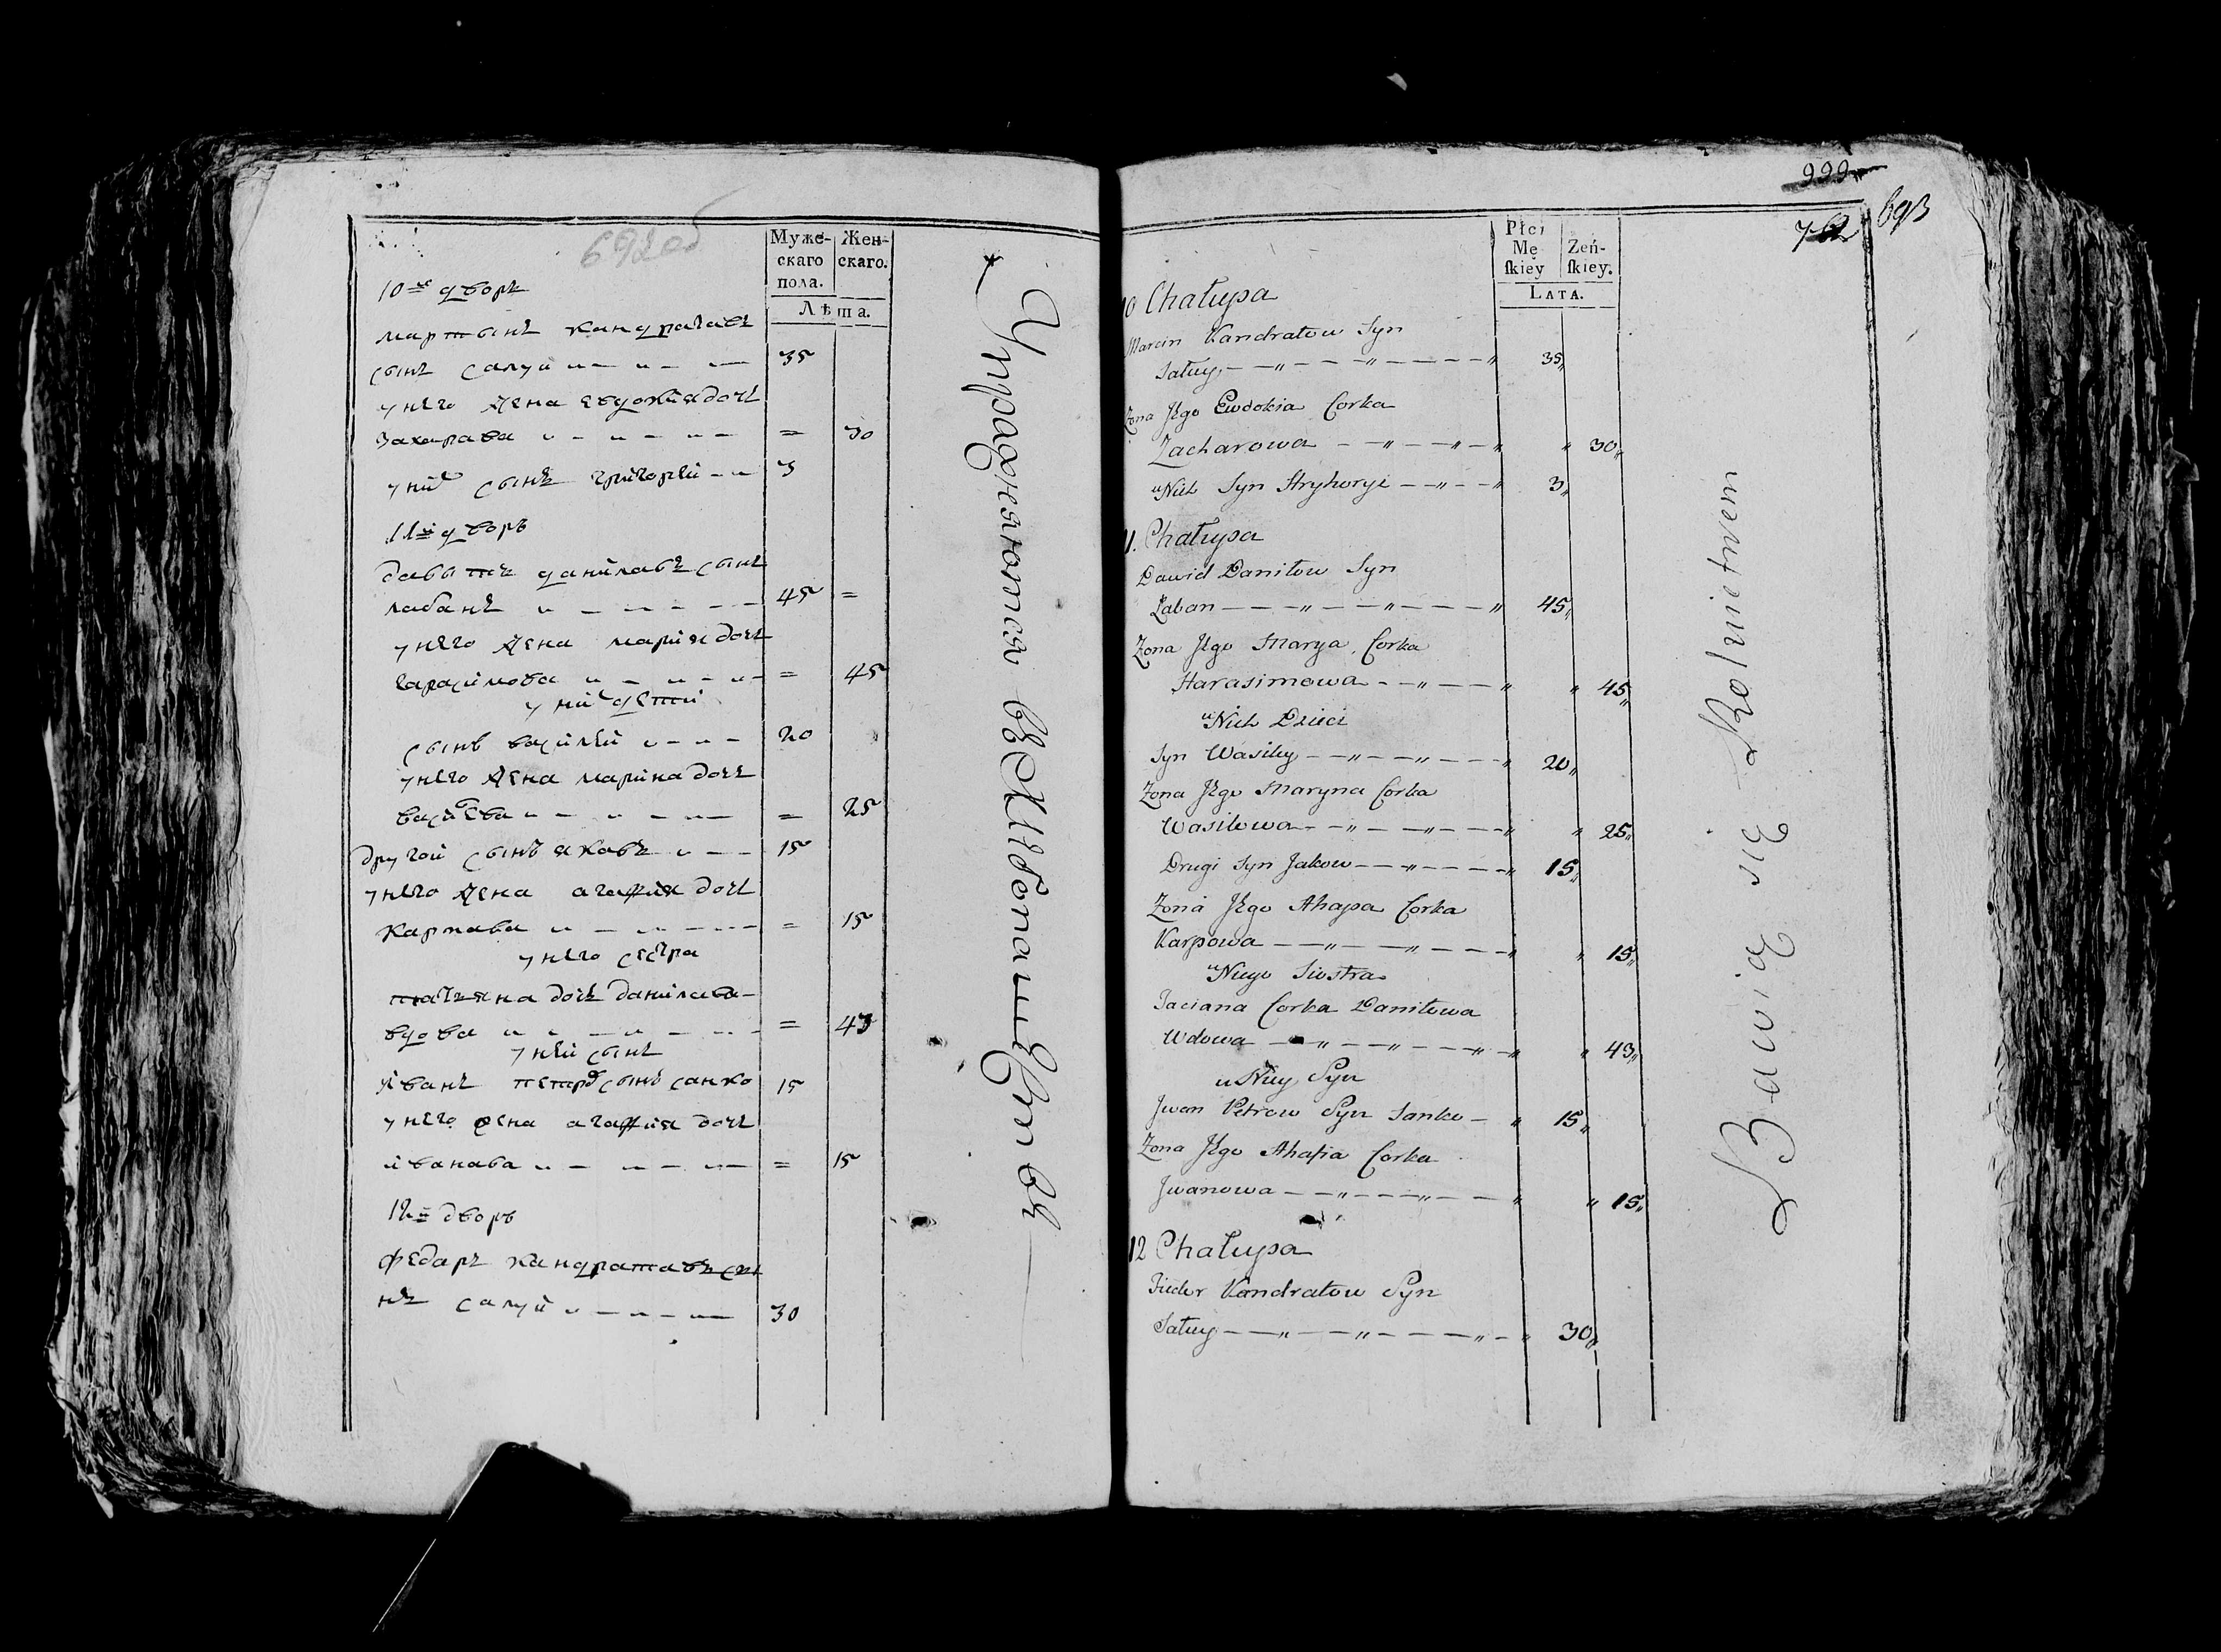 692 об
Муже-
скаго
пола.
Жен-
скаго.
Лѣта.
10й дворъ
мартынъ кандратавъ
сынъ салуй 35
у него жена евдокия дочь
Захарава = 30
у них сынъ григорей 3
11й дворъ
давытъ данилавъ сынъ
лабанъ 45 =
у него жена мария дочь
гарасимова = 45
у них дети
сынъ василей 20
у него жена марина дочь
василева = 25
другой сынъ яковъ 15
у него жена агафия дочь
карпава = 15
у него сестра
татьяна дочь данилава
вдова = 43
у ней сынъ
иванъ петров сынъ санко 15
у него жена агафия дочь
иванава = 15
12й дворъ
федаръ кандратавъ сы
нъ салуй 30
Упражняются въ хлебопашествъ
999
762
693
Płci
Mę
ſkiey
Zeń-
ſkiey.
LATA.
10 Chałupa
Marcin Kandratow Syn
Sałuy 35
Zona Jego Ewdokia Corka
Zacharowa 30
u Nich Syn Hryhoryi 3
11. Chałupa
Dawid Daniłow Syn
Łaban 45
Zona Jego Marya Corka
Harasimowa 45
u Nich Dzieci
Syn Wasiley 20
Zona Jego Maryna Corka
Wasilowa 25
Drugi Syn Jakow 15
Zona Jego Ahapa Corka
Karpowa 15
u Niego Siostra
Taciana Corka Daniłowa
Wdowa 43
u Niey Syn
Jwan Petrow Syn Sanko 15
Zona Jego Ahafia Corka
Jwanowa 15
12 Chałupa
Fiedor Kandratow Syn
Sałuy 30
Bawią się Rolnictwem